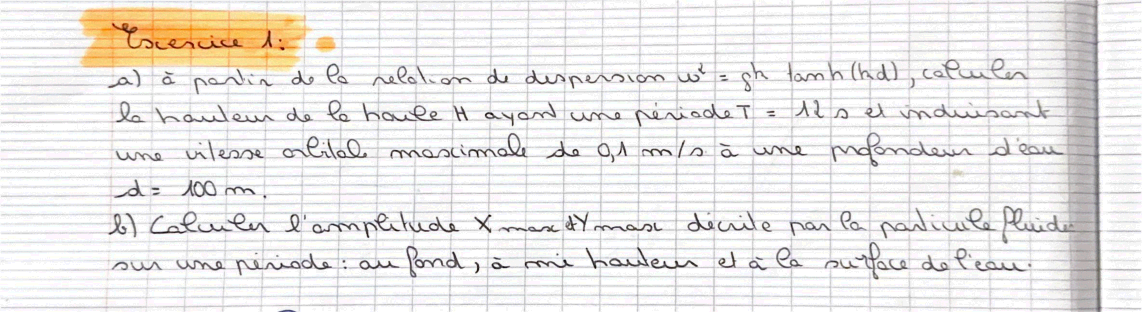 Exercice 1:
a) à partir de la relation de dispersion ω² = gk tanh(kd), calculer
la hauteur de la houle H ayant une période T = 12 s et induisant
une vitesse orbital maximale de 0,1 m/s à une profondeur d'eau
d = 100 m.
b) Calculer l'amplitude X max et Y max décrite par la particule fluide
sur une période: au fond, à mi hauteur et à la surface de l'eau.